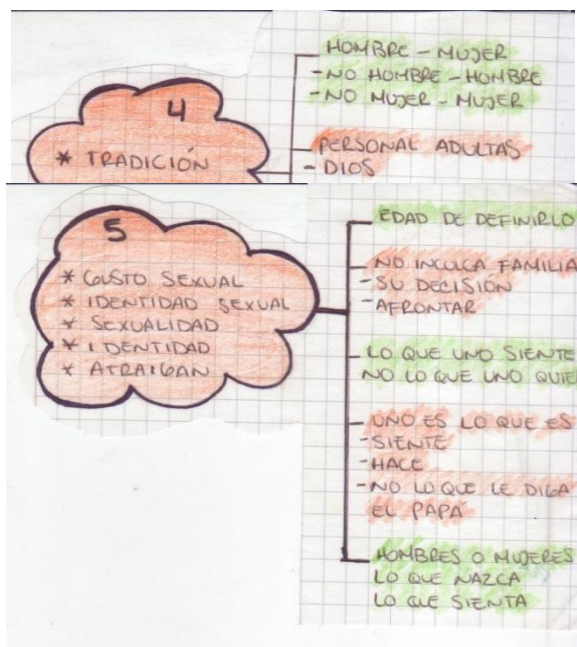 4
* TRADICIÓN
HOMBRE - MUJER
- NO HOMBRE - HOMBRE
- NO MUJER - MUJER
PERSONAL ADULTAS
- DIOS
5
* GUSTO SEXUAL
* IDENTIDAD SEXUAL
* SEXUALIDAD
* IDENTIDAD
* ATRAIGAN
EDAD DE DEFINIRLO
- NO INCULCA FAMILIA
- SU DECISIÓN
- AFRONTAR
- LO QUE UNO SIENTE
NO LO QUE UNO QUIE
- UNO ES LO QUE ES
- SIENTE
- HACE
- NO LO QUE LE DIGA
EL PAPÁ
HOMBRES O MUJERES
LO QUE NAZCA
LO QUE SIENTA